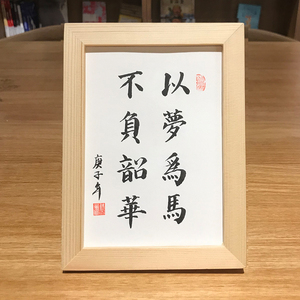 以夢爲馬
不負韶華
庚子年